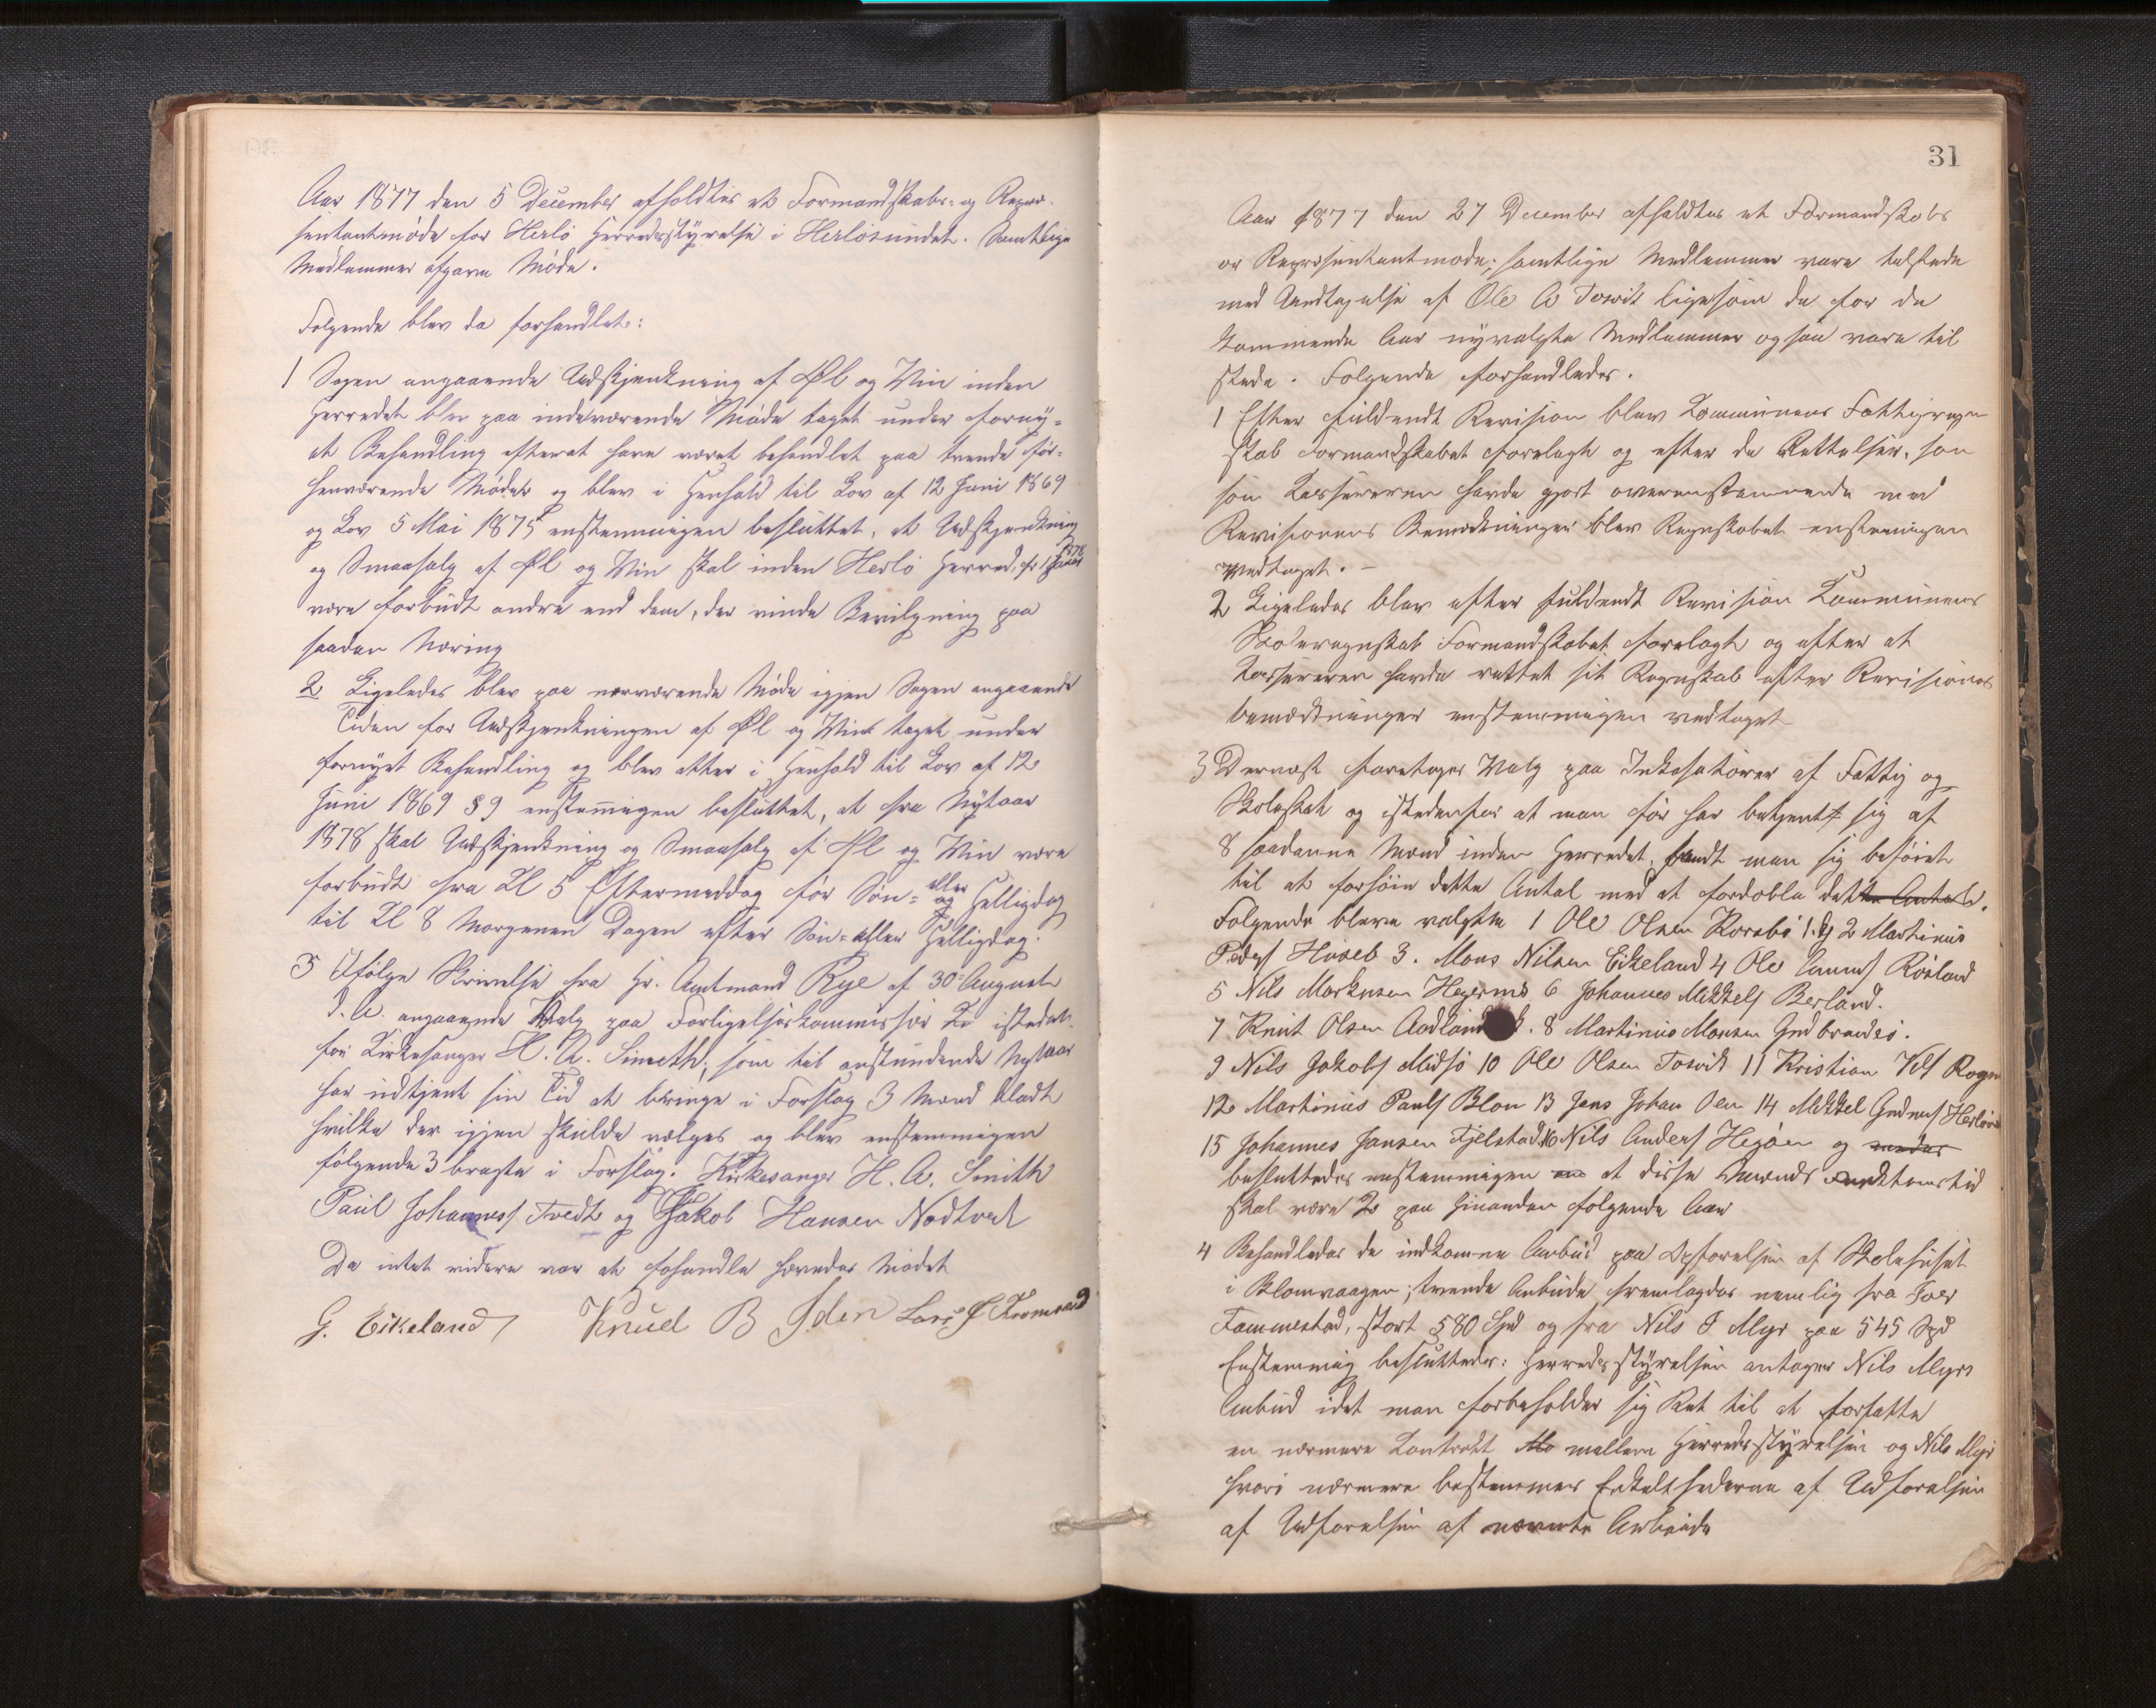 Aar 1877 den 5 December afholdtes et Formandskabs- og Repræ-
sentantmøde for Herlö Herredsstyrelse i Herlösundet. Samtlige
Medlemmer afgave Møde.
Følgende blev da forhandlet:
1 Sagen angaaende Udskjenkning af Øl og Vin inden
Herredet blev paa indeværende Møde taget under forny-
et Behandling efterat have været behandlet paa trende før-
henværende Møder og blev i Henhold til Lov af 12 Juni 1869
og Lov 5 Mai 1875 enstemmigen besluttet, at Udskjenkning
og Smaasalg af Øl og Vin skal inden Herlö Herred, fr 1 Januar 1878
være forbudt andre end dem, der vinde Bevilgning paa
saadan Næring
2 Ligeledes blev paa nærværende Møde igjen Sagen angaaende
Tiden for Udskjenkningen af Øl og Vin taget under
fornyet Behandling og blev atter i Henhold til Lov af 12
Juni 1869 § 9 enstemmigen besluttet, at fra Nytaar
1878 skal Udskjenkning og Smaasalg af Øl og Vin være
forbudt fra Kl 5 Eftermiddag før Søn- og eller Helligdag
til Kl 8 Morgenen Dagen efter Søn- eller Helligdag.
3 Ifølge Skrivelse fra Hr. Amtmand Rye af 30 August
d. A. angaaende Valg paa Forligelseskommissær istedet-
for Kirkesanger H. A. Smith, som til anstundende Nytaar
har udtjent sin Tid at bringe i Forslag 3 Mænd blandt
hvilke der igjen skulde vælges og blev enstemmigen
følgende 3 bragte i Forslag. Kirkesanger H. A. Smith
Paul Johanness Tvedt og Jakob Hansen Nodtvedt
Da intet videre var at fohandle hævedes Mødet
G. Eikeland Knud B Iden Lars J
31
Aar 1877 den 27 December afholdtes et Formandskabs
og Repræsentantmøde; samtlige Medlemmer vare tilstede
med Undtagelse af Ole O Tosvik ligesom de for de
kommende Aar nyvalgte Medlemmer ogsaa vare til
stede. Følgende forhandledes.
1 Efter fuldendt Revision blev Kommunens Fattigregn
skab Formandskabet forelagt og efter de Rettelser, som
som Kassereren havde gjort overensstemmende med
Revisionens Bemærkninger blev Regnskabet enstemmigen
vedtaget. -
2 Ligeledes blev efter fuldendt Revision Kommunens
Skoleregnskab Formandskabet forelagt og efter at
Kassereren havde rettet sit Regnskab efter Revisions
bemærkninger enstemmigen vedtaget
3 Dernæst foretoges Valg paa Inkasatorer af Fattig og
Skoleskat og istedenfor at man før har betjent sig af
8 saadanne Mænd inden Herredet, fandt man sig beføiet
til at forhøie dette Antal med at fordoble dette Antal.
Følgende bleve valgte 1 Ole Olsen Rossbø 2 Martinus
Peders Huseb 3. Mons Nilsen Eikeland 4 Ole Røsland
5 Nils Markusen Hegernes 6 Johannes Mikkels Berland.
7. Knut Olsen Aadland. 8 Martinus Monsen
9 Nils Jakobs Midtsø 10 Ole Olsen Tosvik 11 Kristian
12 Martinus Pauls Blom 13 Jens Johan Oen 14 Mikkel
15 Johannes Jansen Fjelstad 16 Nils Anders Hegøen og
besluttedes enstemmigen at disse Mænds Funktionstid
skal være 2 paa hinanden følgende Aar
4 Behandledes de indkomne Anbud paa Opførelsen af Skolehuset
i Blomvaagen; tvende Anbude fremlagdes nemlig fra Iver
Tammestad, stort 580 Spd og fra Nils J Myr paa 545 Spd
Enstemmig besluttedes: Herredsstyrelsen antager Nils Myrs
Anbud idet man forbeholder sig Ret til at forfatte
en nærmere Kontrakt mellem Herredsstyrelsen og Nils Myr
hvori nærmere bestemmes Enkelthederne af Udførelsen
af Udførelsen af nævnte Arbeide